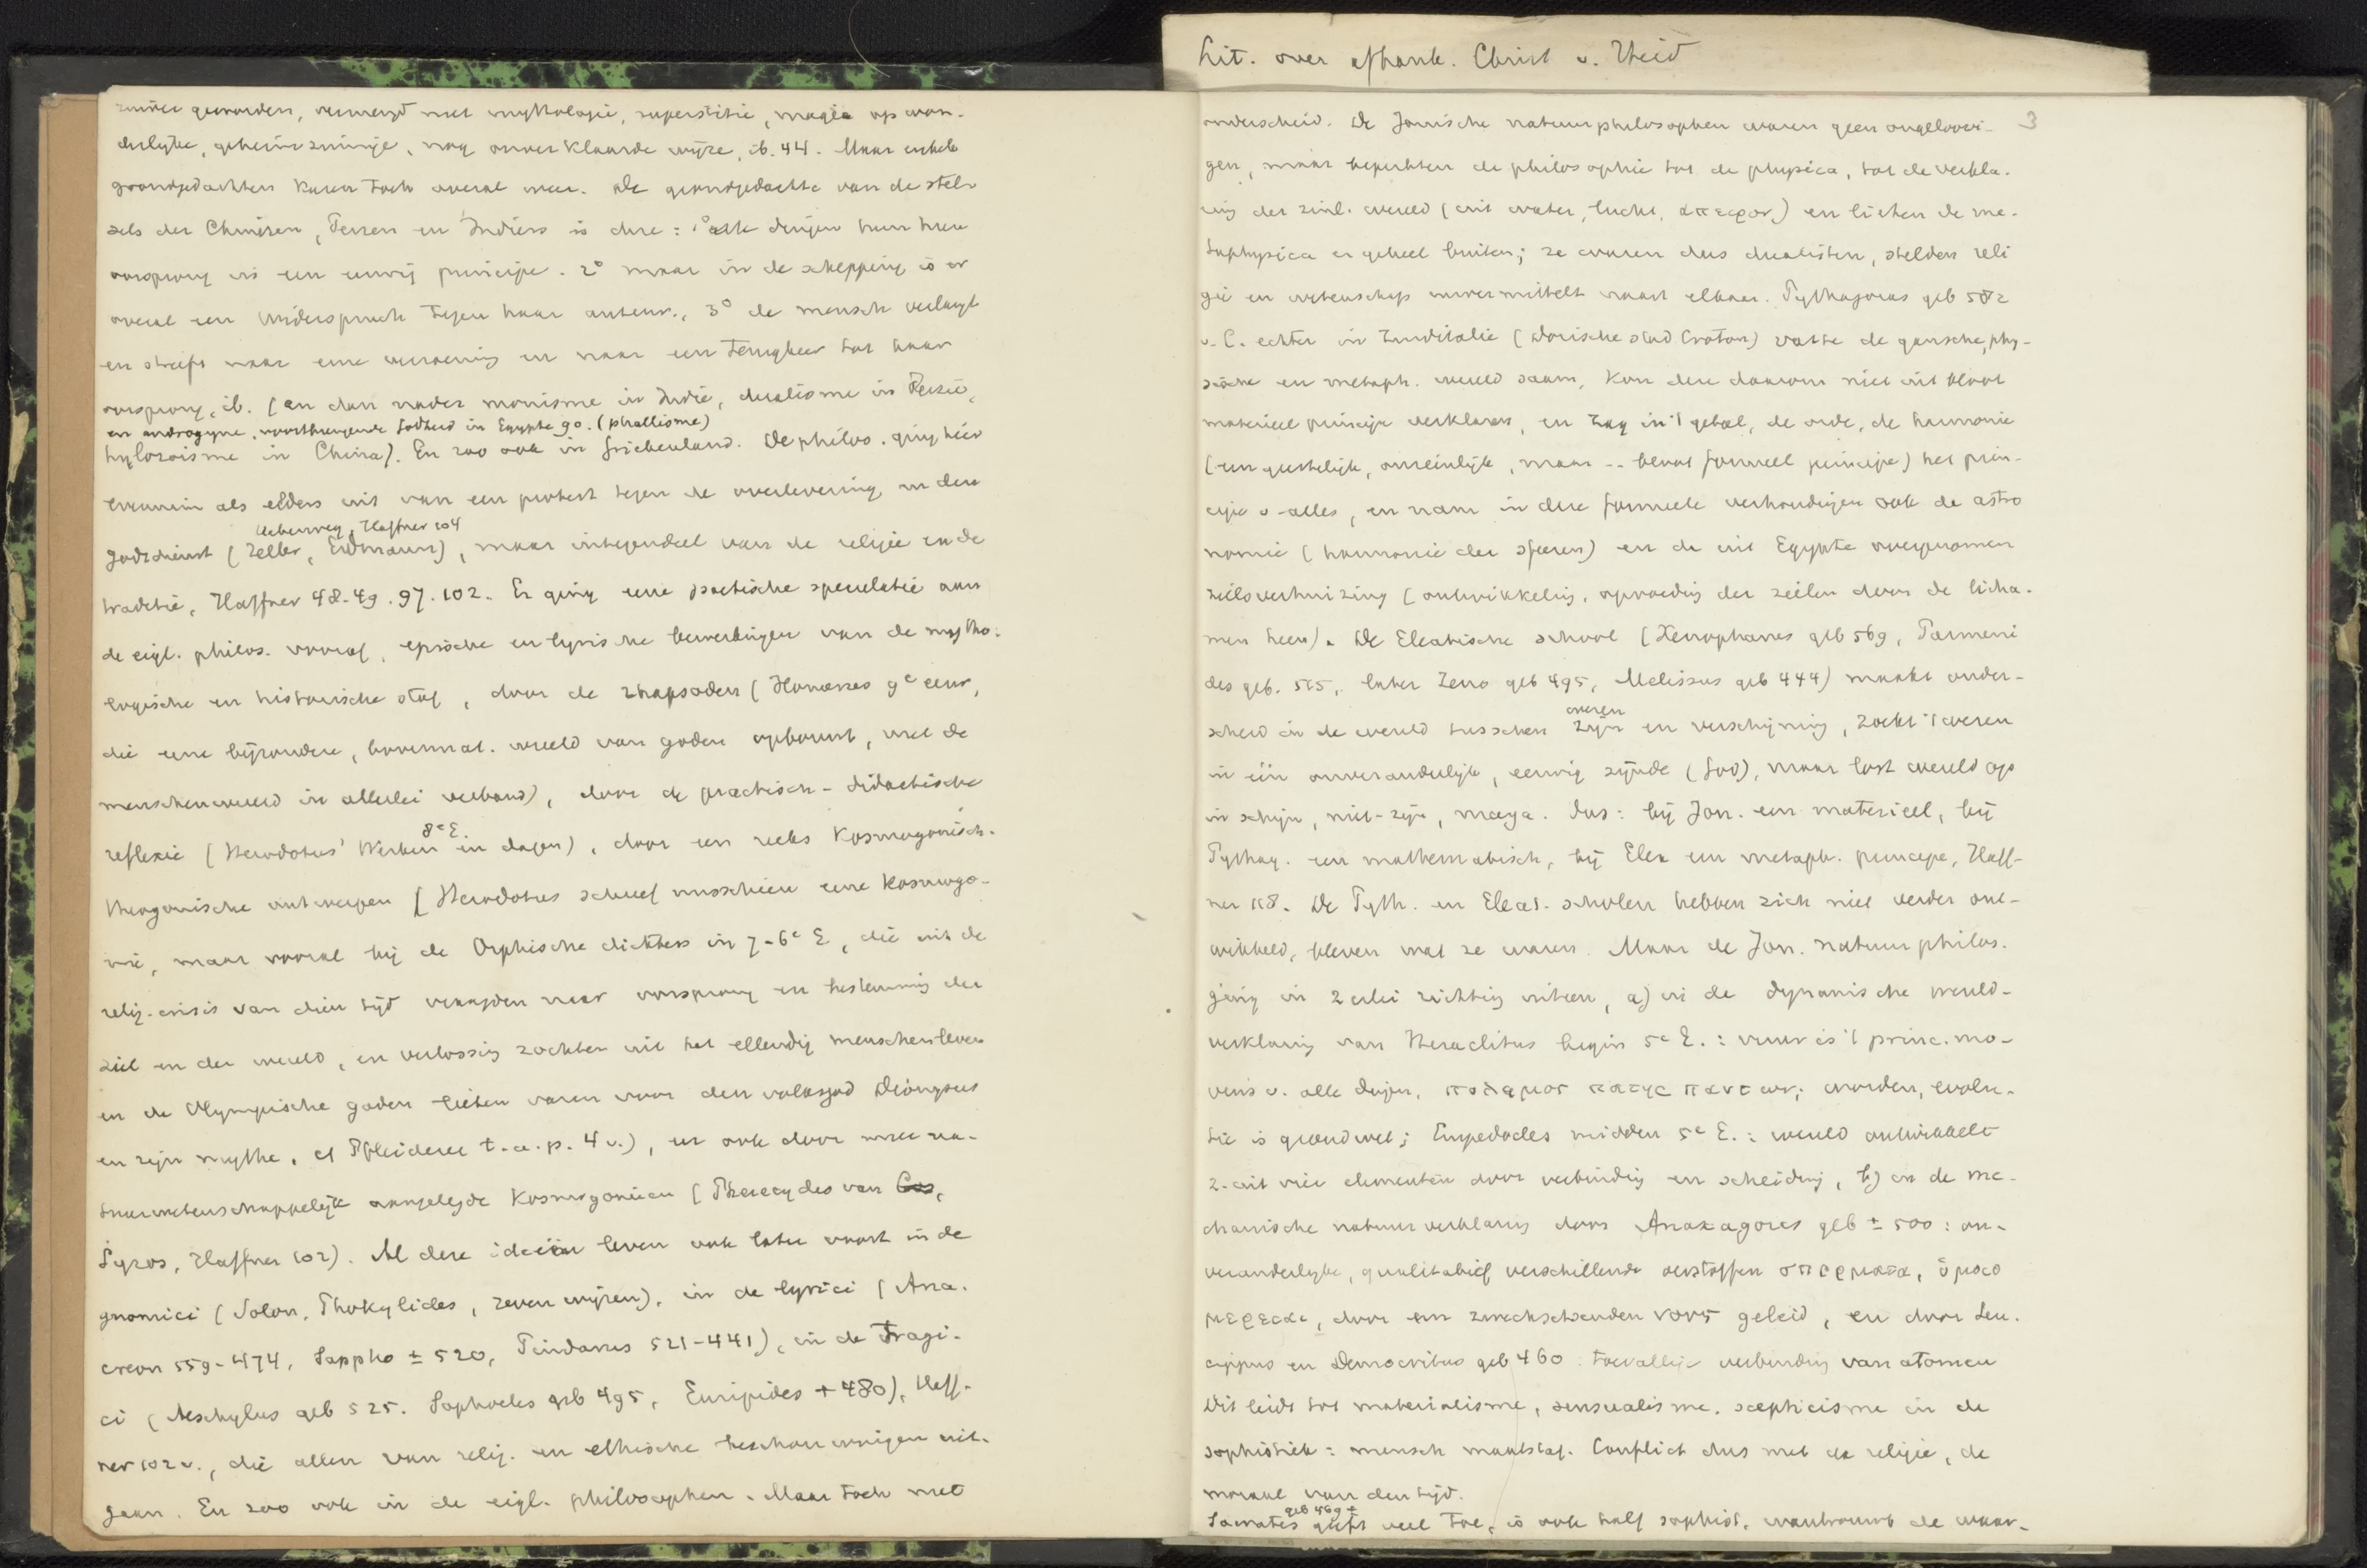 zuiver geworden, vermengd met mythologie, superstitie, magie op won-
derlijke, geheimzinnige, nog onverklaarde wijze, ib. 44. Maar enkele
grondgedachten keren toch overal weer. De grondgedachte van de stel-
sels der Chinezen, Perzen en Indiërs is deze: 1° alle dingen hun
oorsprong in een eenig principe. 2° maar in de schepping is er
overal een Widerspruch tegen haar auteur., 3° de mensch verlangt
en streeft naar eene verzoening en naar een terugkeer tot haar
oorsprong, ib. (en dan nader monisme in Indië, dualisme in Perzië,
en androgyne, voortbrengende Godheid in Egypte 90. (phallisme)
hylozoisme in China). En zoo ook in Griekenland. De philos. ging hier
evenmin als elders uit van een protest tegen de overlevering en den
Ueberweg, Haffner 104
godsdienst (Zeller, Erdmann), maar integendeel van de religie en de
traditie, Haffner 48-49. 97. 102. Er ging eene poetische speculatie aan
de eigl. philos. vooraf, epische en lyrische bewerkingen van de mytho-
logische en historische stof, door de rhapsoden (Homerus 9e eeuw,
die eene bijzondere, bovennat. wereld van goden opbouwt, met de
menschenwereld in allerlei verband), door de practisch-didactische
8e E.
reflexie (Herodotus' Werken en dagen), door een reeks kosmogonisch-
theogonische ontwerpen (Herodotus schreef misschien eene kosmogo-
nie, maar vooral bij de Orphische dichters in 7-6e E, die uit de
relig. crisis van dien tijd vraagden naar oorsprong en bestemming der
ziel en der wereld, en verlossing zochten uit het ellendig menschenleven
en de Olympische goden lieten varen voor den volksgod Dionysus
en zijn mythe, cf Pfleiderer t.a.p. 4 v.), en ook door meer na-
tuurwetenschappelijk aangelegde kosmogonieën (Pherecydes van Cos,
Syros, Haffner 102). Al deze ideeën leven ook later voort in de
gnomici (Solon, Phokylides, zeven wijzen), in de lyrici (Ana-
creon 559-474, Sappho ± 520, Pindarus 521-441), in de Tragi-
ci (Aeschylus geb 525. Sophocles geb 495, Euripides + 480), Haff-
ner 102 v., die allen van relig. en ethische beschouwingen uit-
gaan. En zoo ook in de eigl. philosophen. Maar toch met
Lit. over afhank. Christ v. Heid
3
onderscheid. De Jonische natuurphilosophen waren geen ongeloovi-
gen, maar beperkten de philosophie tot de physica, tot de verkla-
ring der zinl. wereld (uit water, lucht, απειρον) en lieten de me-
taphysica er geheel buiten; ze waren dus dualisten, stelden reli
gie en wetenschap onvermittelt naast elkaar. Pythagoras geb 582
v. C. echter in Zuiditalie (Dorische stad Croton) vatte de gansche, phy-
sische en metaph. wereld saam, kon deze daarom niet uit bloot
materieel principe verklaren, en zag in 't getal, de orde, de harmonie
(een geestelijk, onzienlijk, maar -- bloot formeel principe) het prin-
cipe v. alles, en nam in deze formeele verhoudingen ook de astro
nomie (harmonie der sferen) en de uit Egypte overgenomen
zielsverhuizing (ontwikkeling, opvoeding der zielen door de licha-
men heen). De Eleatische school (Xenophanes geb 569, Parmeni
des geb. 515, later Zeno geb 495, Melissus geb 444) maakt onder-
wezen
scheid in de wereld tusschen zijn en verschijning, zoekt 't wezen
in één onveranderlijk, eeuwig zijnde (God), maar lost wereld op
in schijn, niet-zijn, maya. Dus: bij Jon. een materieel, bij
Pythag. een mathematisch, bij Elea een metaph. principe, Haff-
ner 118. De Pyth. en Eleat. scholen hebben zich niet verder ont-
wikkeld, bleven wat ze waren. Maar de Jon. natuurphilos.
ging in 2 erlei richting uiteen, a) in de dynamische wereld-
verklaring van Heraclitus begin 5e E.: vuur is 't princ. mo-
vens v. alle dingen, πολεμος πατηρ παντων; worden, evolu-
tie is grondwet; Empedocles midden 5e E.: wereld ontwikkelt
z. uit vier elementen door verbinding en scheiding, b) in de me-
chanische natuurverklaring door Anaxagoras geb ± 500: on-
veranderlijke, qualitatief verschillende oerstoffen σπερματα, ὁμοιο
μερειαι, door een zweckschenden νους geleid, en door Leu-
cippus en Democritus geb 460: toevallige verbinding van atomen
Dit leidt tot materialisme, sensualisme, scepticisme in de
sophistiek: mensch maatstaf. Conflict dus met de religie, de
moraal van den tijd.
geb 469 ±
Socrates geeft veel toe, is ook half sophist, wantrouwt de waar-